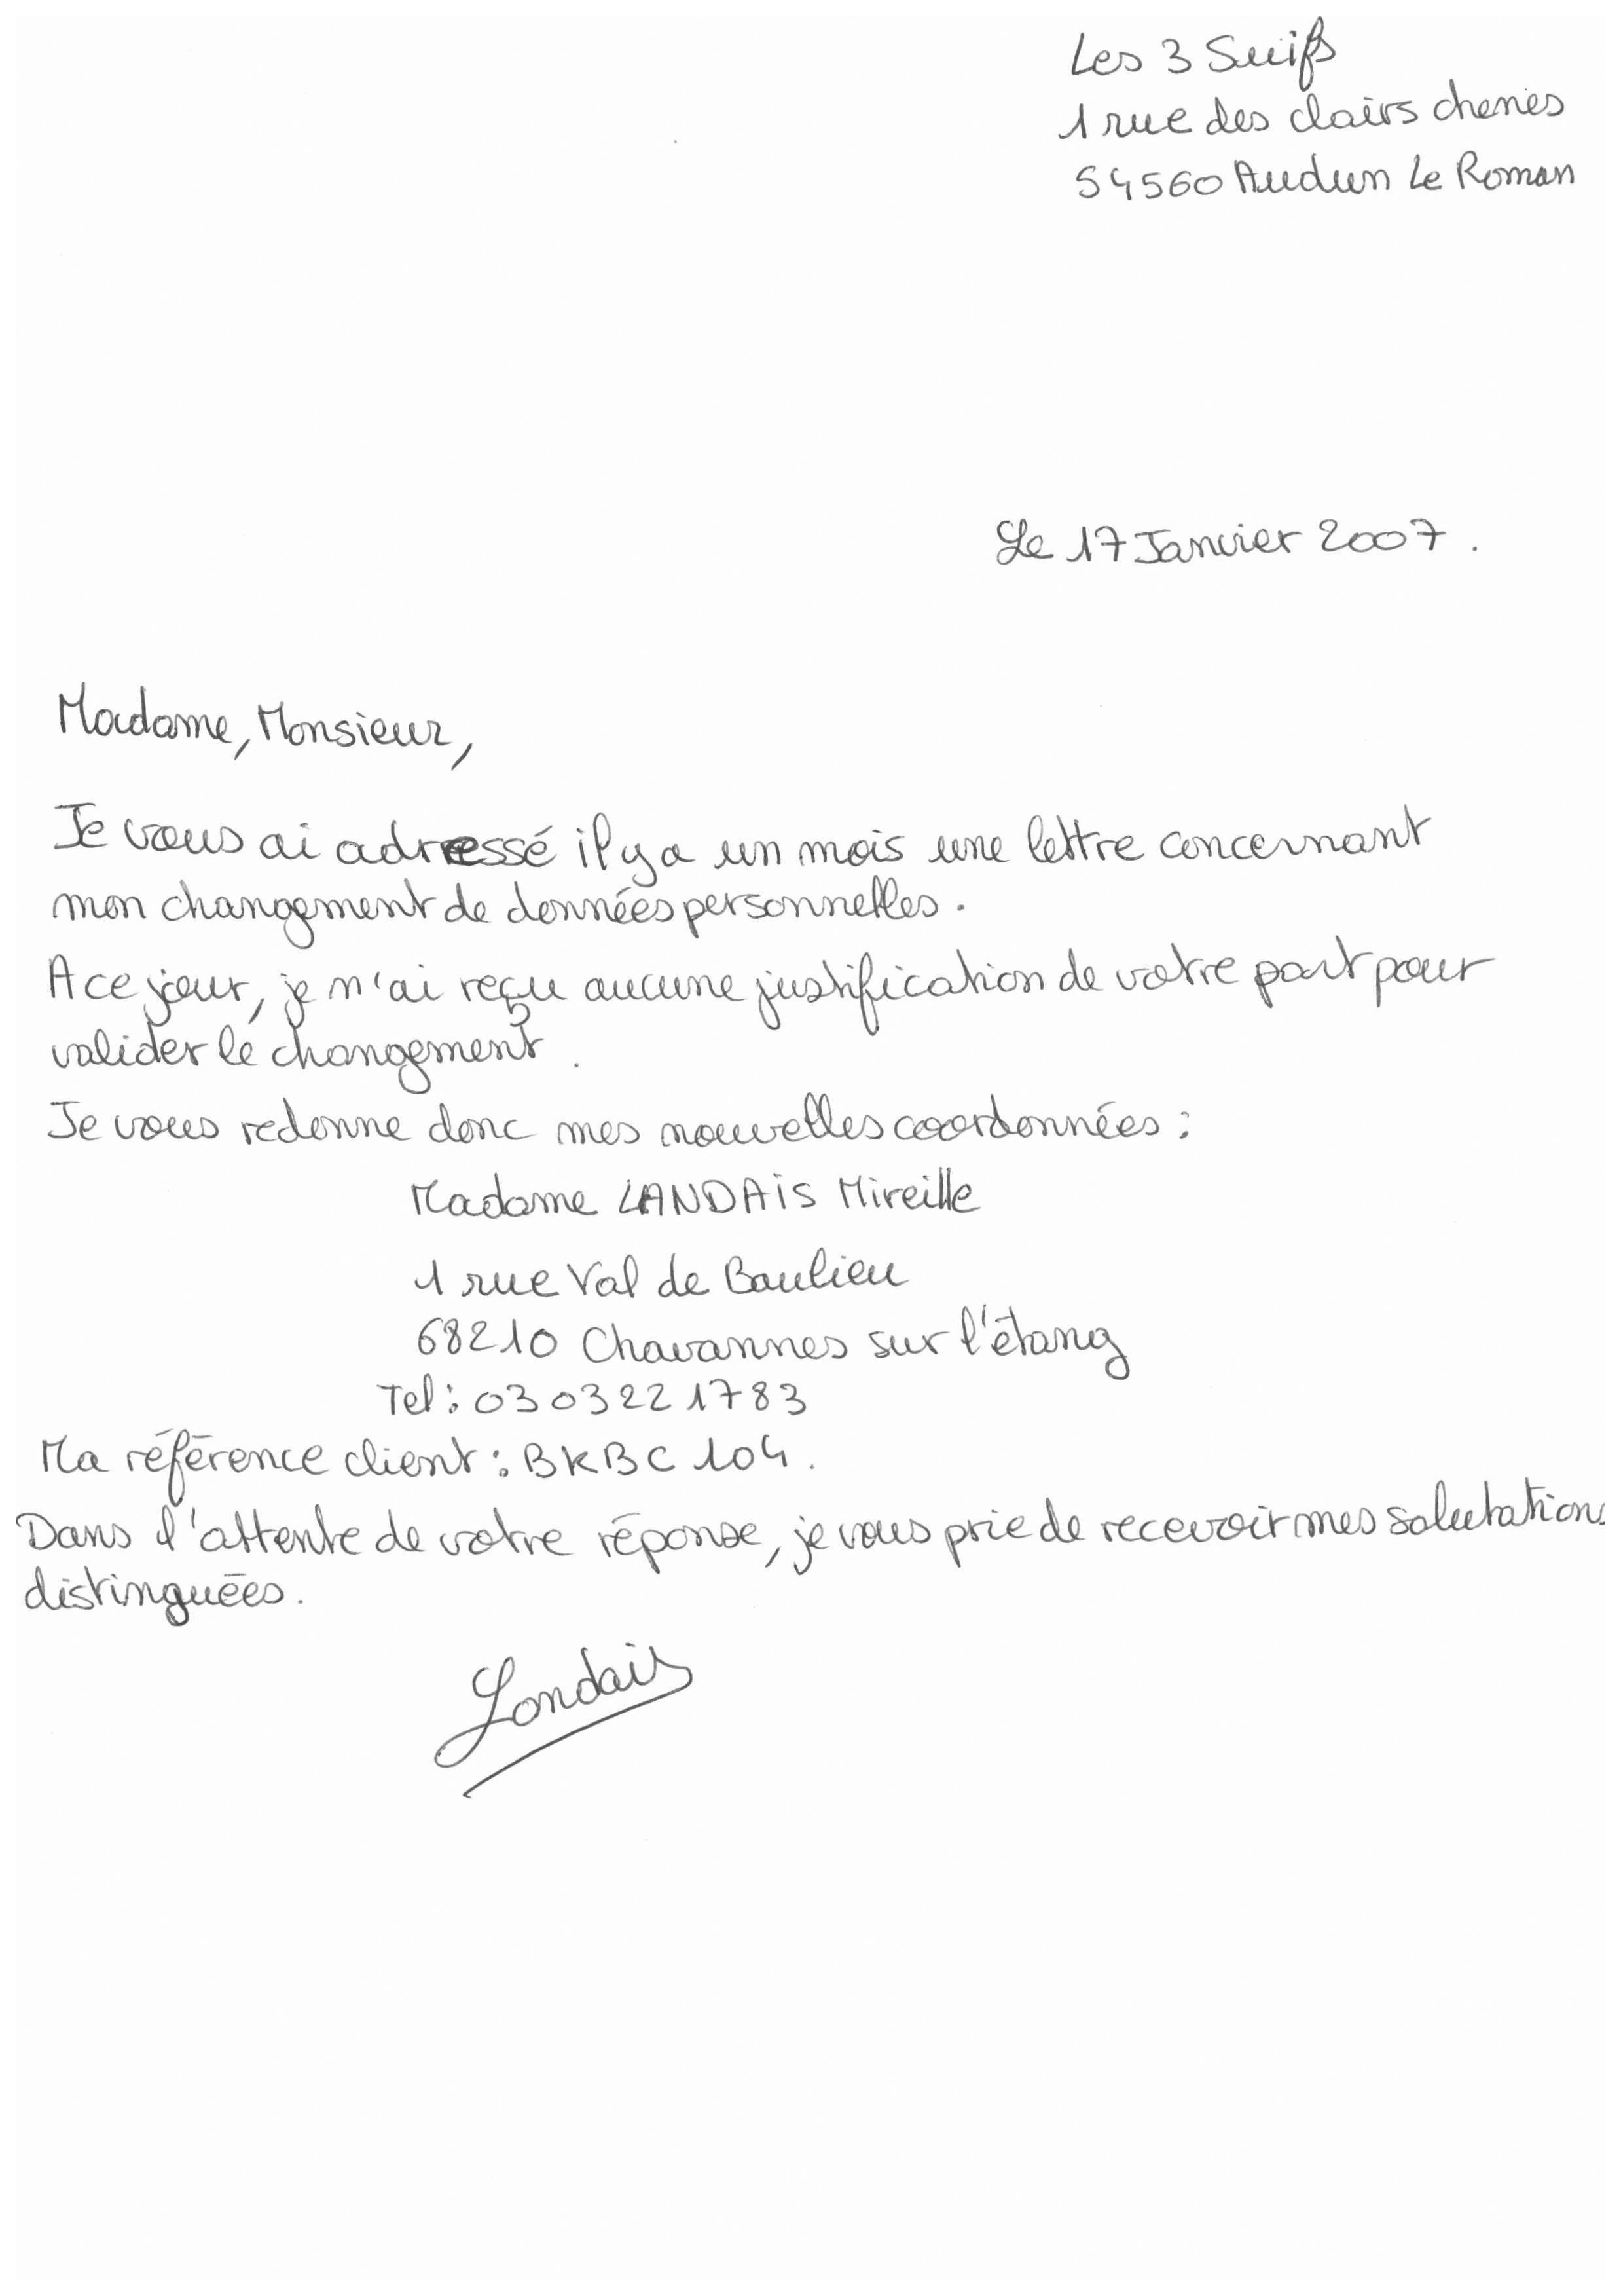 Les 3 Suifs
1 rue des clairs chenes
54560 Audun Le Roman
Le 17 Janvier 2007.
Madame, Monsieur,
Je vous ai adressé il y a un mois une lettre concernant
mon changement de données personnelles.
A ce jour, je n'ai reçu aucune justification de votre part pour
valider le changement.
Je vous redonne donc mes nouvelles coordonnées :
Madame LANDAIS Mireille
1 rue Val de Baulieu
68210 Chavannes sur l'étang
Tel : 03 03 22 17 83
Ma référence client : BKBC 104.
Dans l'attente de votre réponse, je vous prie de recevoir mes salutations
distinguées.
Landais